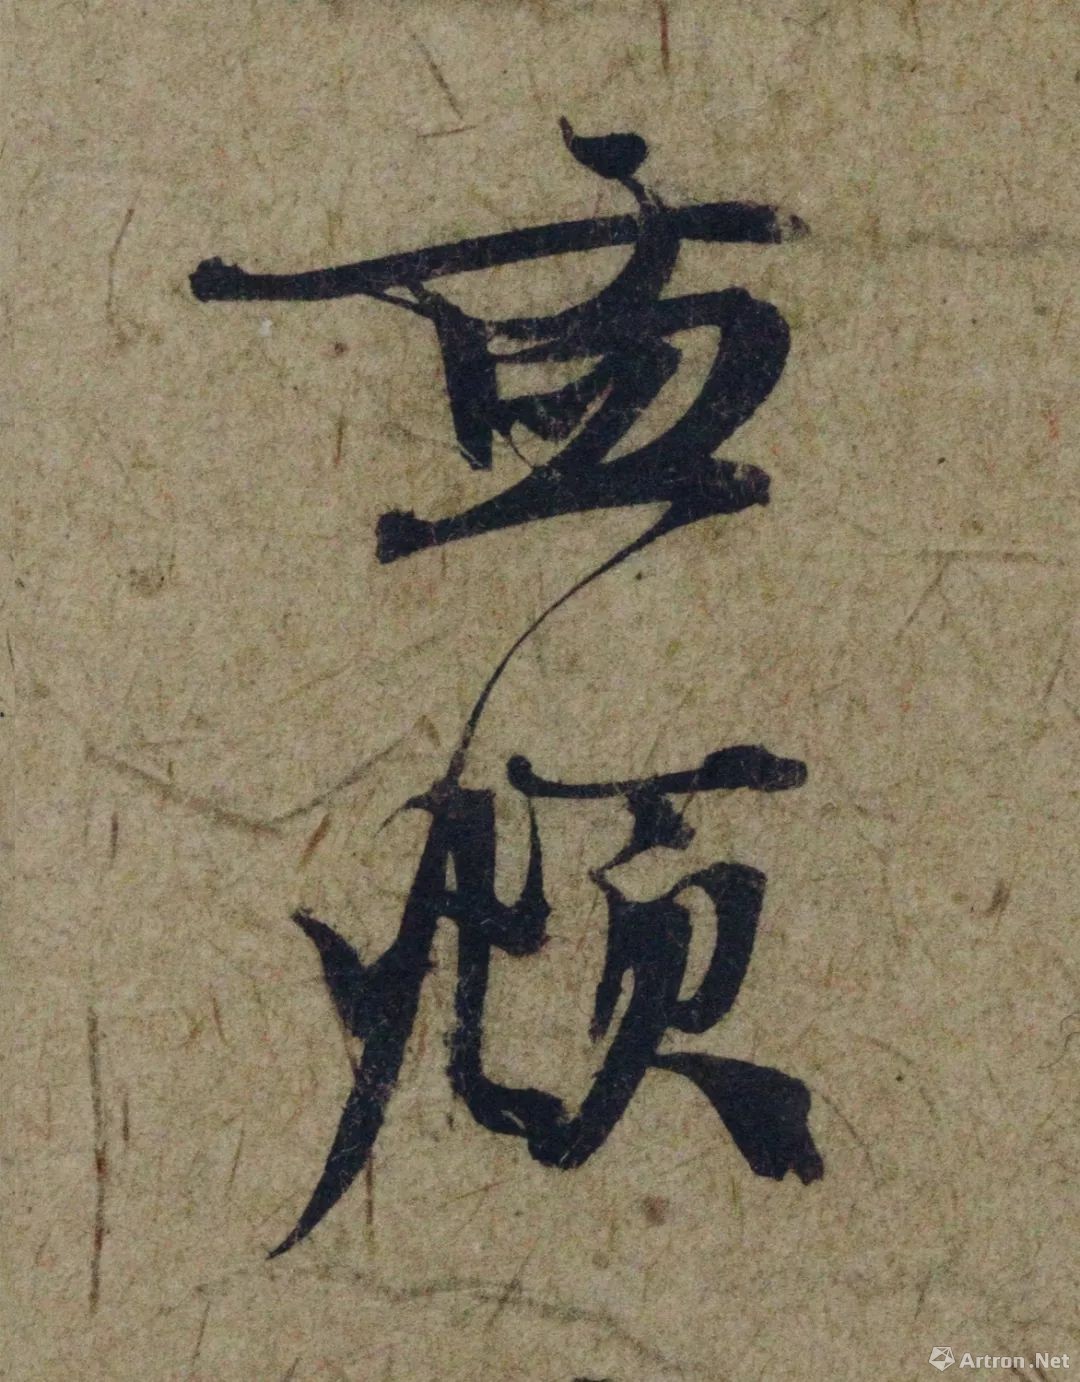 煩
Artron.Net